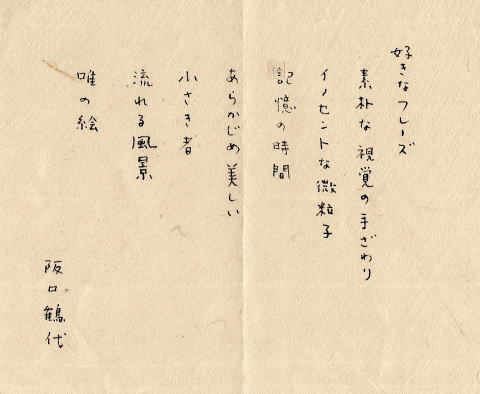 好きなフレーズ
素朴な視覚の手ざわり
イノセントな微粒子
記憶の時間
あらかじめ美しい
小さき者
流れる風景
唯の絵
阪口鶴代